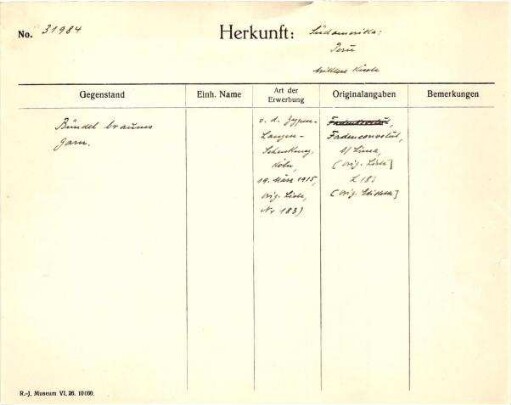 No. 31984
Herkunft:
Südamerika:
Peru
mittlere Küste
Gegenstand
Einh. Name
Art der Erwerbung
Originalangaben
Bemerkungen
Bündel braunes
Garn.
v. d. Zypen-
Langen-
Schenkung,
Köln,
19. März 1915,
orig. Liste,
Nr 183)
Fadenconvolut,
b/ Lima,
(orig. Liste]
L 18:
(orig. Etikette]
R.-J. Museum VI. 26. 10100.